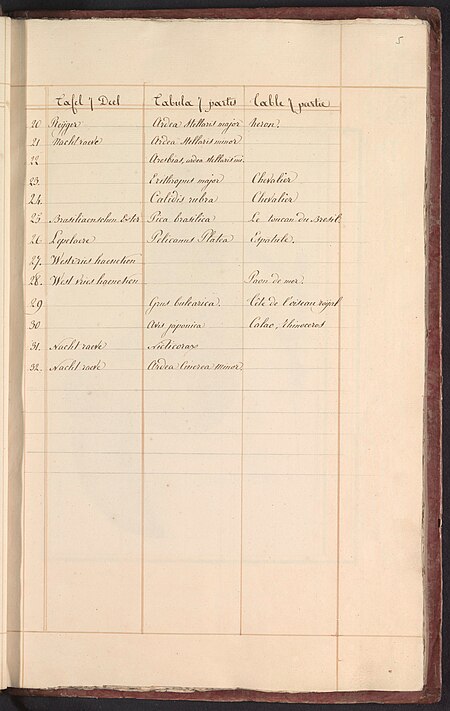 5
Tafel 7 Deel Tabula 7 partis Table 7 partie
20 Reijger Ardea Stellaris major heron.
21 Nacht raeve Ardea Stellaris minor
22 ardea stellaris mi.
23. Erithropus major Chevalier
24. Calidis rubra Chevalier
25 Pica brasilica Le toucan du Bresil
26 Lepelaire Pelicanus Platea Espatule.
27. West vries haenetien
28. West vries haenetien Paon de mer.
29 Grus balearica. Tête de l'oiseau royal
30 Avis japonica Calao, rhinoceros
31. Nacht raeve Nicticorax
32. Nacht raeve Ardea Cinerea minor